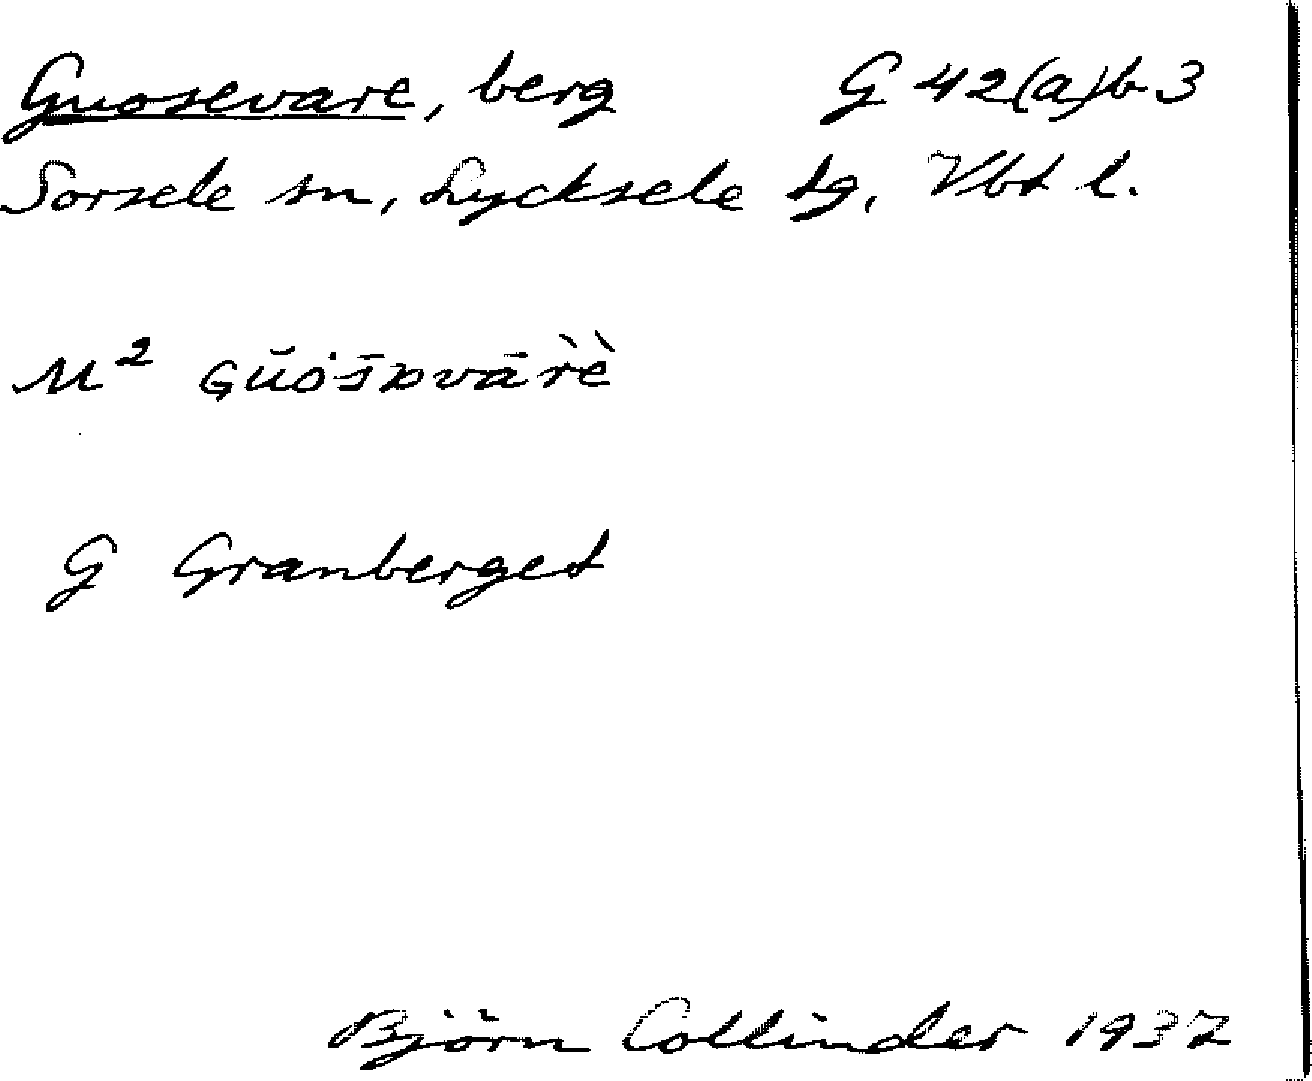 Guosevare, berg G 42(a)b 3
Sorsele sn, Lycksele tg, Vbt l.
M²
G Granberget
Björn Collinder 1937